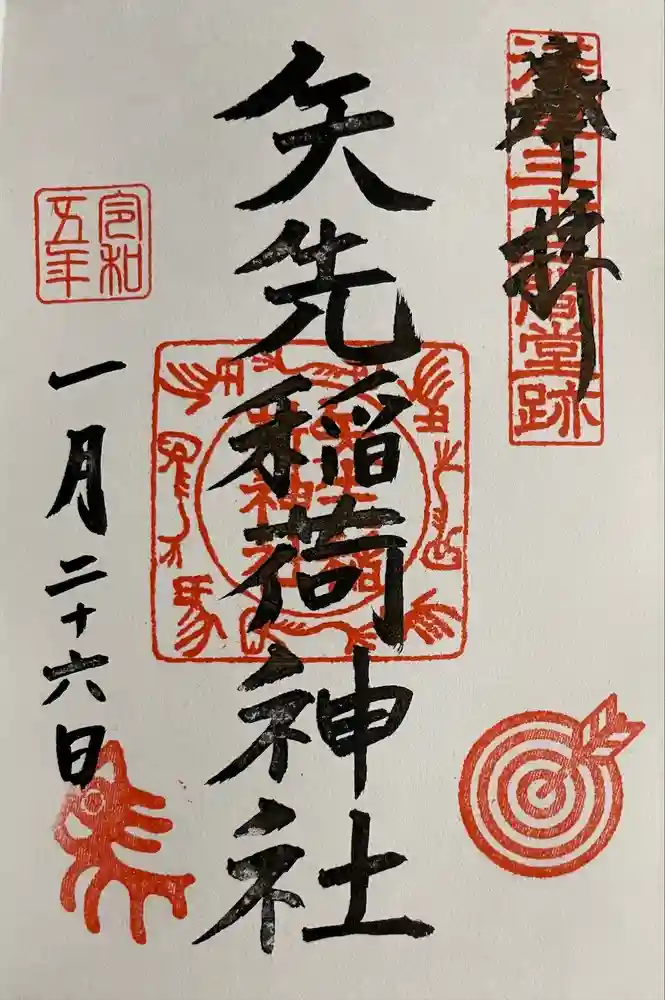 奉拝
浅草三十三間堂跡
矢先稲荷神社
令和
五年
一月二十六日